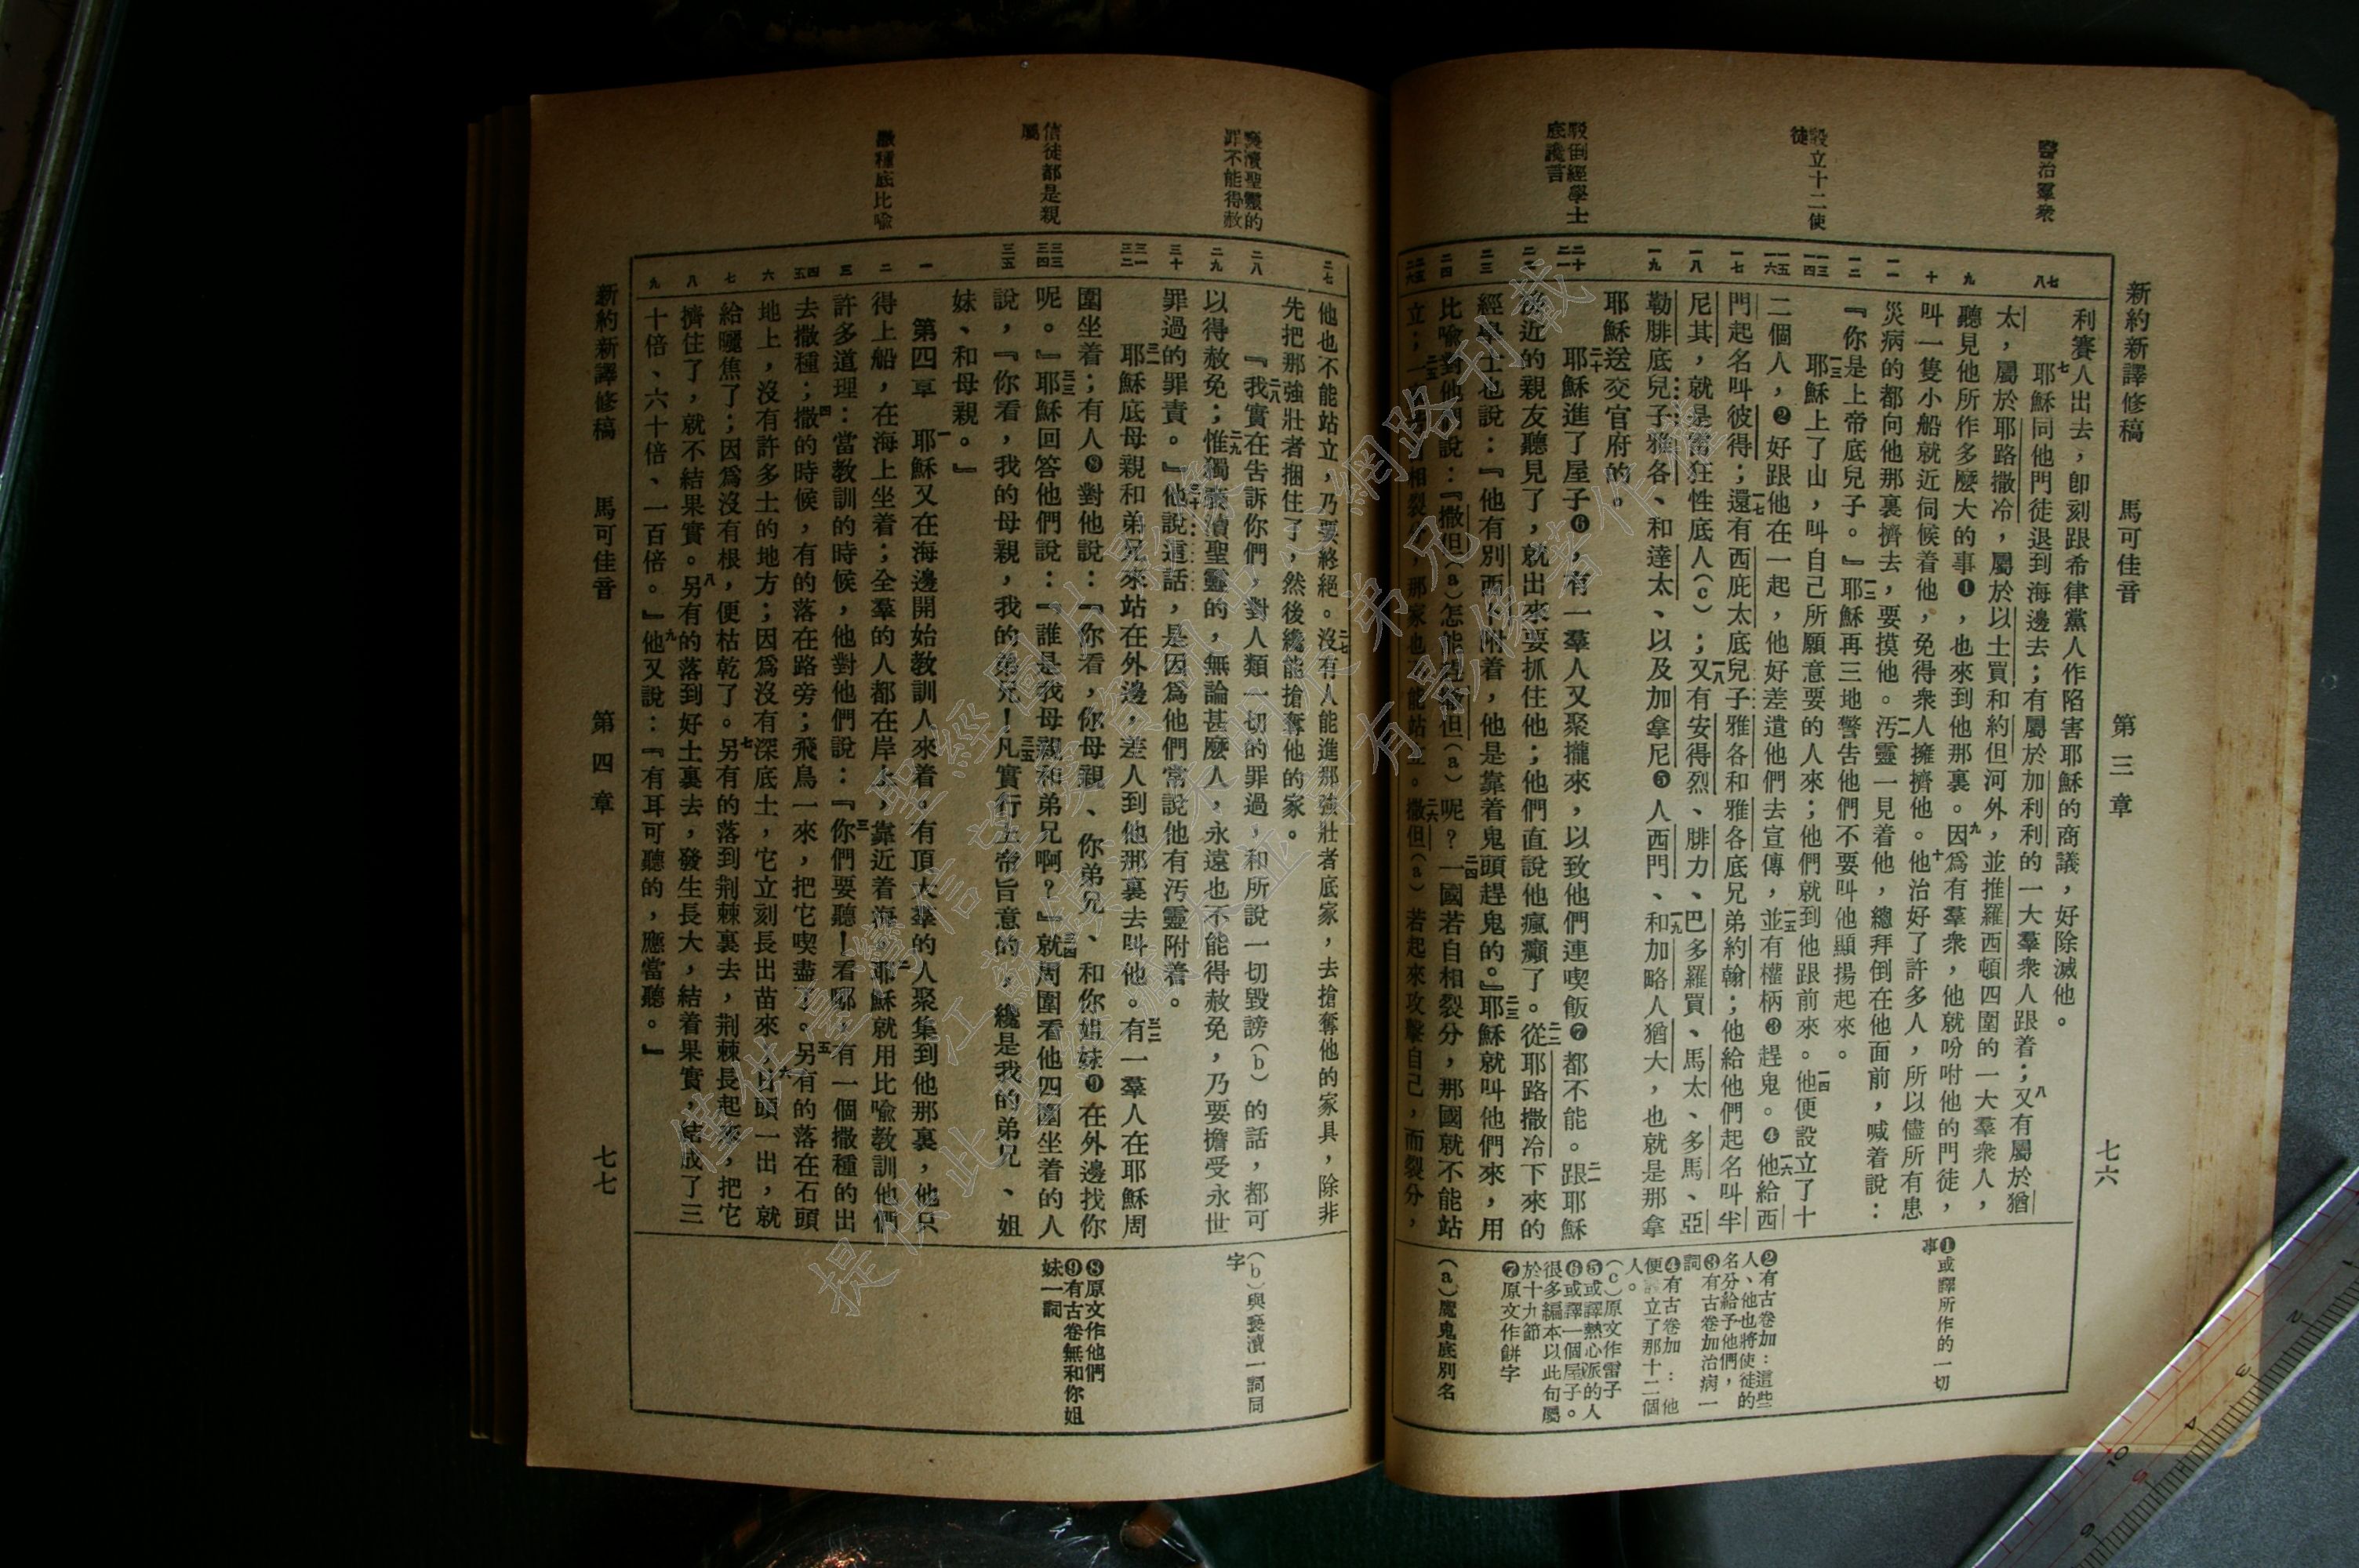 新約新譯修稿 馬可佳音 第三章 七六
醫治羣衆
設立十二使
徒
駁倒經學士
底讒言
利賽人出去,卽刻跟希律黨人作陷害耶穌的商議,好除滅他。
七耶穌同他門徒退到海邊去;有屬於加利利的一大羣衆人跟着;八又有屬於猶
太,屬於耶路撒冷,屬於以土買和約但河外,並推羅西頓四圍的一大羣衆人,
聽見他所作多麼大的事❶,也來到他那裏。九因爲有羣衆,他就吩咐他的門徒,
叫一隻小船就近伺候着他,免得衆人擁擠他。十他治好了許多人,所以儘所有患
災病的都向他那裏擠去,要摸他。一一汚靈一見着他,總拜倒在他面前,喊着說:
『你是上帝底兒子。』一二耶穌再三地警告他們不要叫他顯揚起來。
一三耶穌上了山,叫自己所願意要的人來;他們就到他跟前來。一四他便設立了十
二個人,❷好跟他在一起,他好差遣他們去宣傳,一五並有權柄❸趕鬼。❹一六他給西
門起名叫彼得;一七還有西庇太底兒子雅各和雅各底兄弟約翰;他給他們起名叫半
尼其,就是雷狂性底人(c);一八又有安得烈、腓力、巴多羅買、馬太、多馬、亞
勒腓底兒子雅各、和達太、以及加拿尼❺人西門、一九和加略人猶大,也就是那拿
耶穌送交官府的。
二十耶穌進了屋子❻,有一羣人又聚攏來,以致他們連喫飯❼都不能。二一跟耶穌
接近的親友聽見了,就出來要抓住他;他們直說他瘋癲了。二二從耶路撒冷下來的
經學士也說:『他有別西卜附着,他是靠着鬼頭趕鬼的。』二三耶穌就叫他們來,用
比喩對他們說:『撒但(a)怎能趕撒但(a)呢?二四一國若自相裂分,那國就不能站
立;二五一家若自相裂分,那家也不能站立。二六撒但(a)若起來攻擊自己,而裂分,
❶或譯所作的一切
事
❷有古卷加:這些
人、他也將使徒的
名分給予他們,
❸有古卷加治病一
詞
❹有古卷加:他
便設立了那十二個
人。
(c)原文作雷子
❺或譯熱心派的人
❻或譯一個屋子。
很多編本以此句屬
於十九節
❼原文作餅字
(a)魔鬼底別名
褻瀆聖靈的
罪不能得赦
信徒都是親
屬
撒種底比喩
他也不能站立,乃要終絕。二七沒有人能進那強壯者底家,去搶奪他的家具,除非
先把那強壯者捆住了,然後纔能搶奪他的家。
『二八我實在告訴你們,對人類一切的罪過,和所說一切毀謗(b)的話,都可
以得赦免;二九惟獨褻瀆聖靈的,無論甚麼人,永遠也不能得赦免,乃要擔受永世
罪過的罪責。』三十他說這話,是因爲他們常說他有汚靈附着。
三一耶穌底母親和弟兄來站在外邊,差人到他那裏去叫他。三二有一羣人在耶穌周
圍坐着;有人❽對他說:『你看,你母親、你弟兄、和你姐妹❾在外邊找你
呢。』三三耶穌回答他們說:『誰是我母親和弟兄啊?』三四就周圍看他四圍坐着的人
說,『你看,我的母親,我的弟兄!三五凡實行上帝旨意的,纔是我的弟兄、姐
妹、和母親。』
第四章 一耶穌又在海邊開始教訓人來着。有頂大羣的人聚集到他那裏,他只
得上船,在海上坐着;全羣的人都在岸上,靠近着海。二耶穌就用比喩教訓他們
許多道理:當教訓的時候,他對他們說:『三你們要聽!看哪,有一個撒種的出
去撒種;四撒的時候,有的落在路旁;飛鳥一來,把它喫盡了。五另有的落在石頭
地上,沒有許多土的地方;因爲沒有深底土,它立刻長出苗來;六日頭一出,就
給曬焦了;因爲沒有根,便枯乾了。七另有的落到荆棘裏去,荆棘長起來,把它
擠住了,就不結果實。八另有的落到好土裏去,發生長大,結着果實,結成了三
十倍、六十倍、一百倍。』九他又說:『有耳可聽的,應當聽。』
(b)與褻瀆一詞同
字
❽原文作他們
❾有古卷無和你姐
妹一詞
新約新譯修稿 馬可佳音 第四章 七七